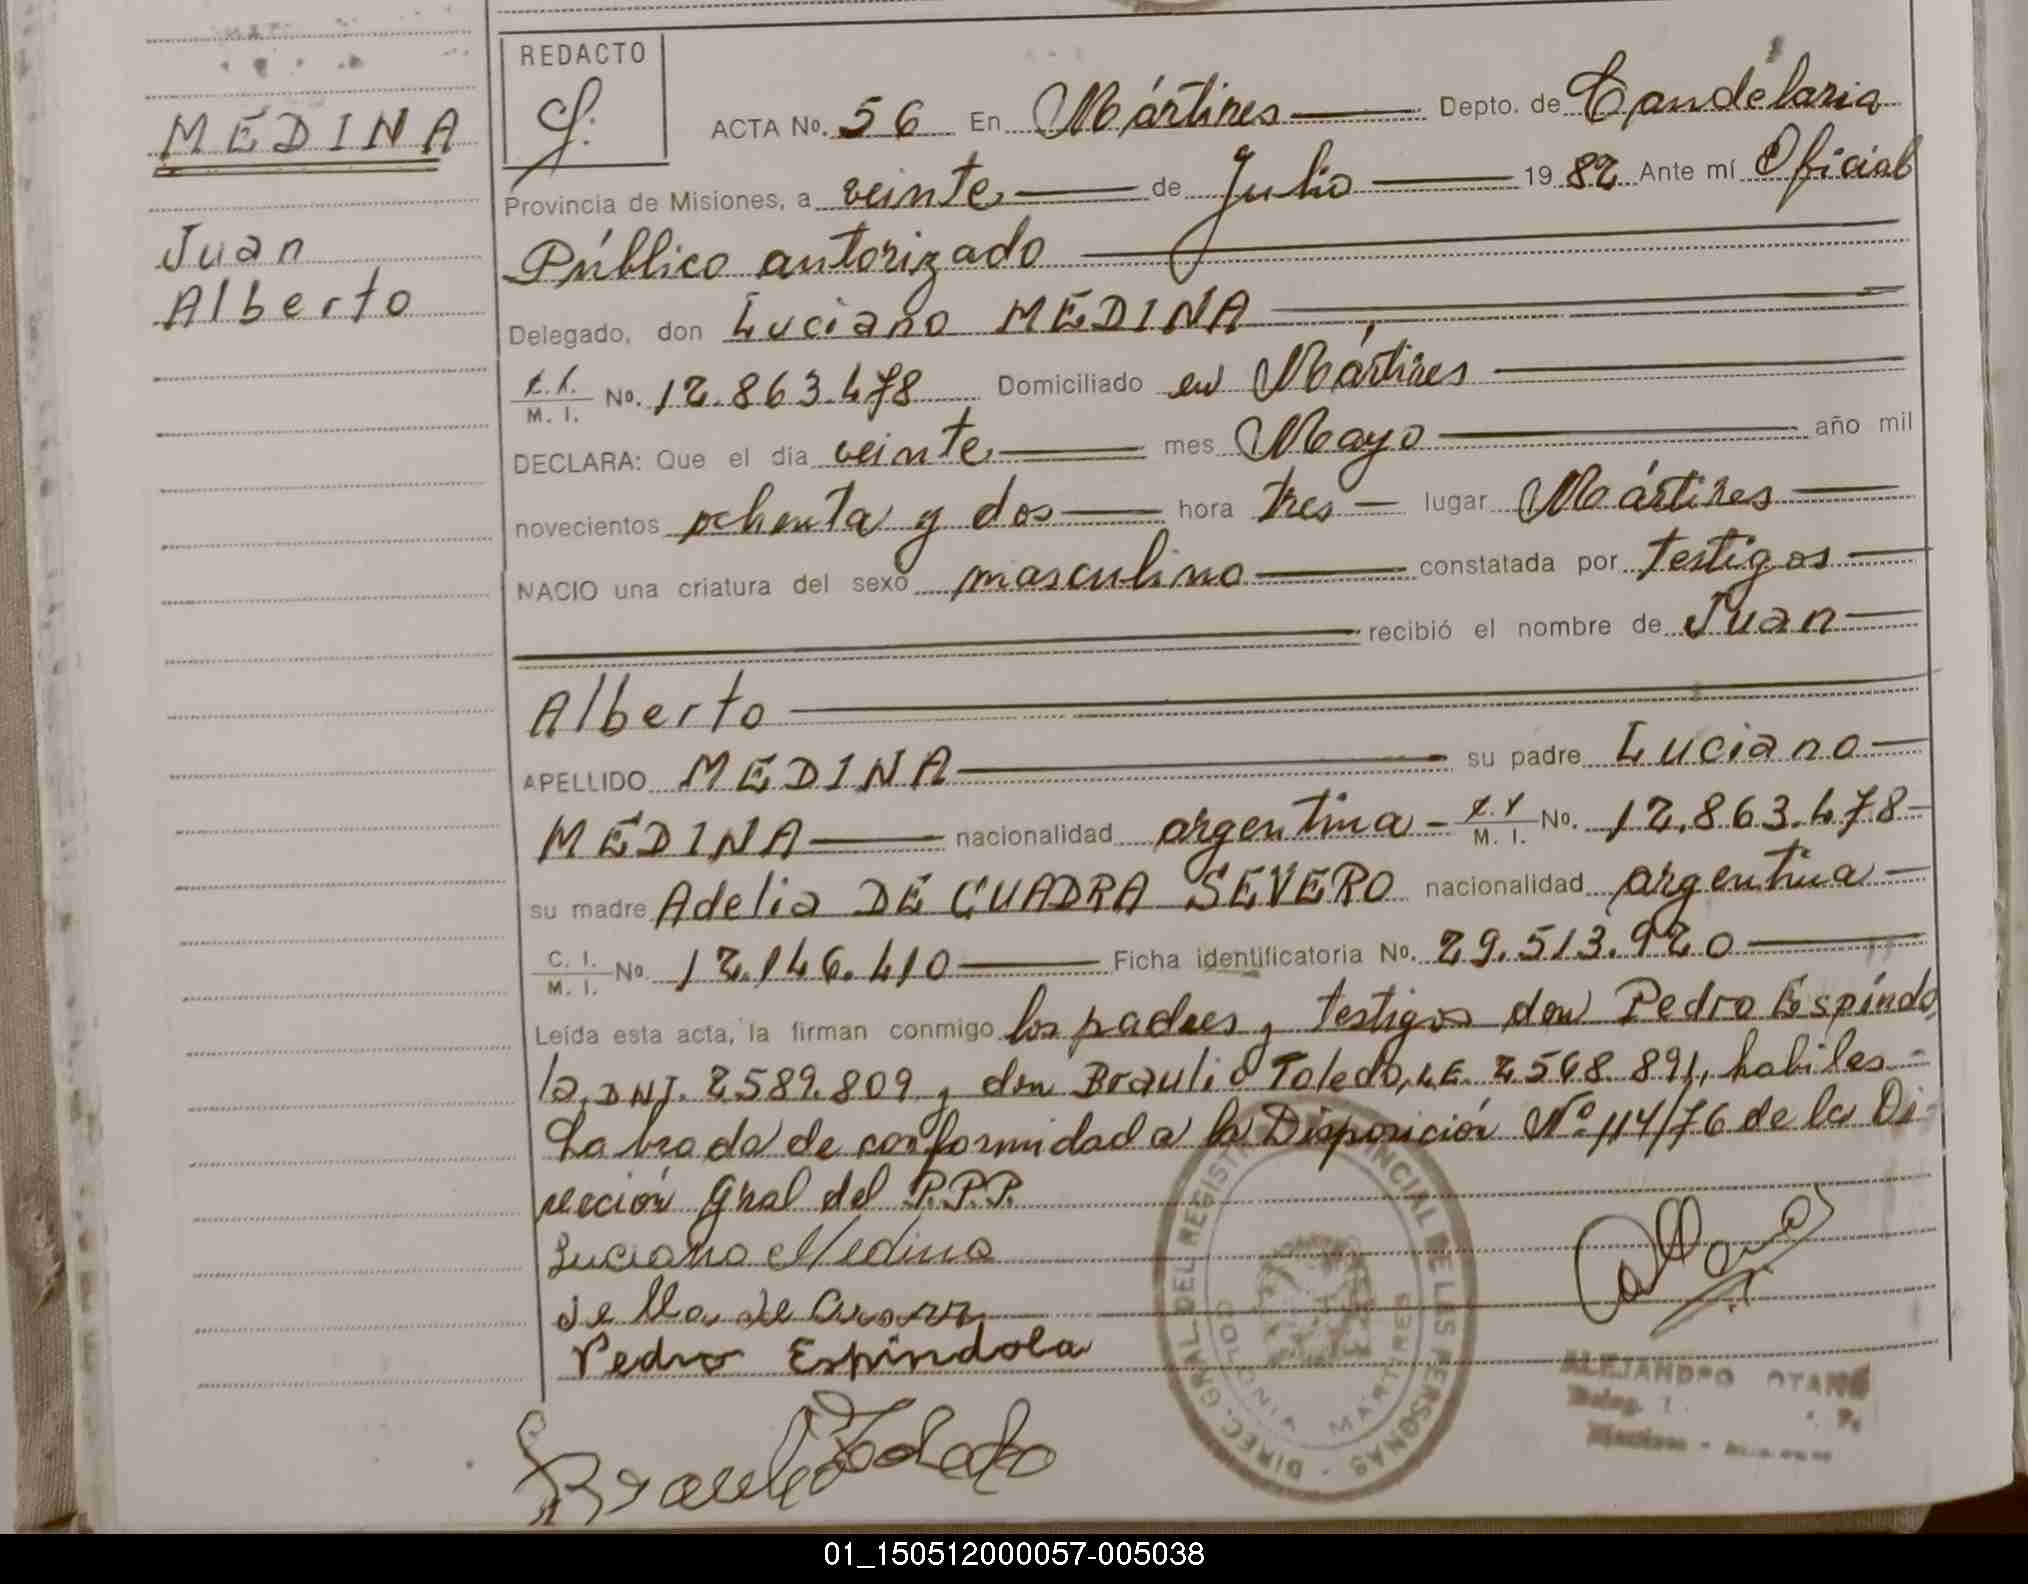 MEDINA
Juan
Alberto
REDACTO
ACTA No. 56 En Mártires Depto. de Candelaria
Provincia de Misiones, a veinte de Julio 1982 Ante mí Oficial
Público autorizado
Delegado, don Luciano MEDINA
M. I. No. 12.863.478 Domiciliado en Mártires
DECLARA: Que el dia veinte mes Mayo año mil
novecientos ochenta y dos hora tres lugar Mártires
NACIO una criatura del sexo masculino constatada por testigos
recibió el nombre de Juan
Alberto
APELLIDO MEDINA su padre Luciano
MEDINA nacionalidad argentina M. I. No. 12.863.478
su madre Adelia DE CUADRA SEVERO nacionalidad argentina
C. I. M. I. No. 12.146.410 Ficha identificatoria No. 29.513.920
Leída esta acta, la firman conmigo los padres y testigos don Pedro Espíndo
la, DNI. 2589.809 y don Braulio Toledo, LE. 2568.891, habiles
Labrada de conformidad a la Disposición Nº 114/76 de la Di
rección Gral del P.P.P.
Luciano Medina
de
Pedro Espindola
Braulio Toledo
DIREC. GRAL. DEL REGISTRO PROVINCIAL DE LAS PERSONAS
COLONIA MARTIRES
ALEJANDRO
01_150512000057-005038